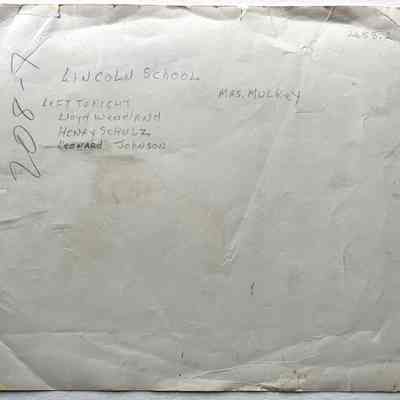 2658-2
208-7
LINCOLN SCHOOL
MRS. MULKEY
LEFT TO RIGHT
LLOYD WENDLAND
HENRY SCHULZ
LEONARD JOHNSON